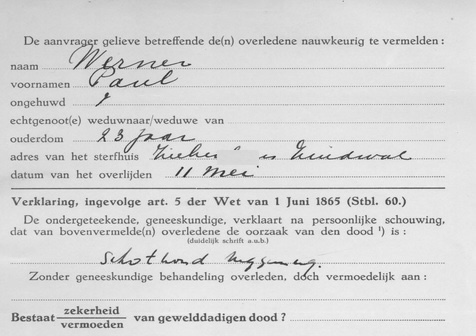 De aanvrager gelieve betreffende de(n) overledene nauwkeurig te vermelden :
naam Werner
voornamen Paul
ongehuwd
echtgenoot(e) weduwnaar/weduwe van
ouderdom 23 jaar
adres van het sterfhuis Zuidwal
datum van het overlijden 11 Mei
Verklaring, ingevolge art. 5 der Wet van 1 Juni 1865 (Stbl. 60.)
De ondergeteekende, geneeskundige, verklaart na persoonlijke schouwing,
dat van bovenvermelde(n) overledene de oorzaak van den dood ¹) is :
(duidelijk schrift a.u.b.)
Schotwond
Zonder geneeskundige behandeling overleden, doch vermoedelijk aan :
Bestaat zekerheid van gewelddadigen dood ?
vermoeden